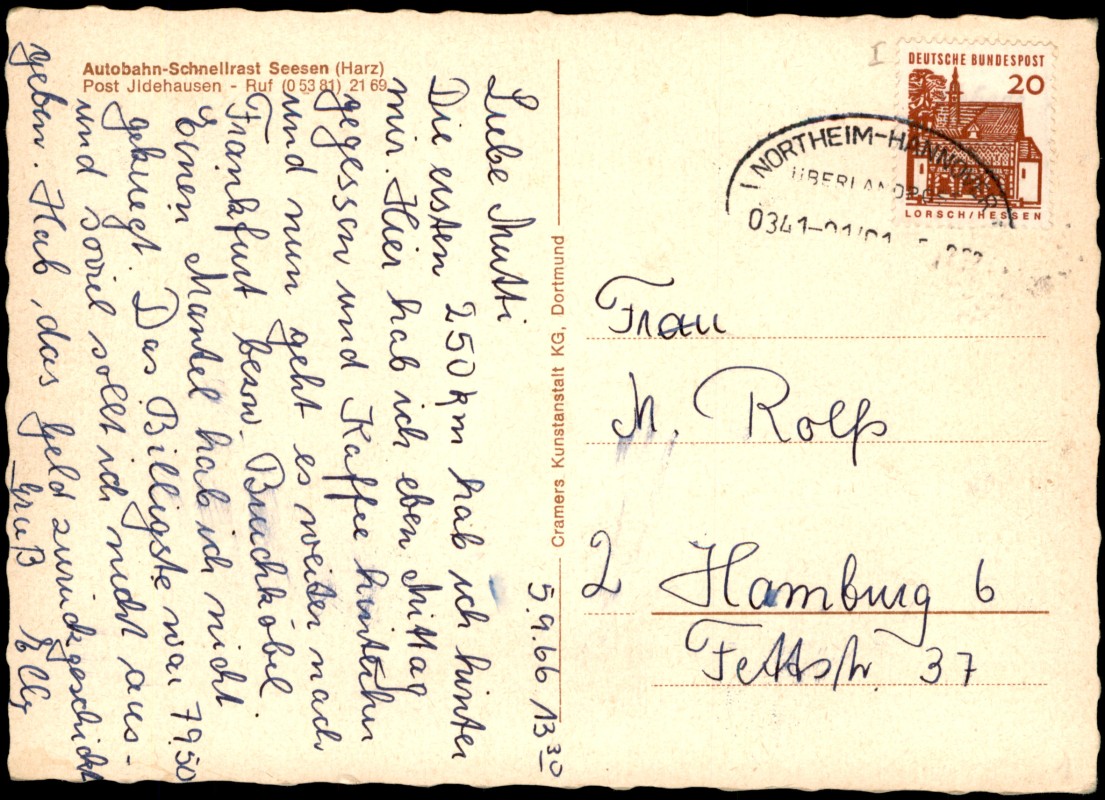 Autobahn-Schnellrast Seesen (Harz)
Post Jldehausen - Ruf (0 53 81) 21 69
5.9.66 13³⁰
Liebe Mutti
Die ersten 250 km hab ich hinter
mir. Hier hab ich eben Mittag
gegessen und Kaffee hinterher
und nun geht es weiter nach
Frankfurt bezw. Bruchköbel
Einen Mantel hab ich nicht
gekriegt. Das Billigste war 79.50
und soviel sollt ich nicht aus-
geben. Hab das Geld zurückgeschickt
Gruß Elly
Cramers Kunstanstalt KG, Dortmund
I
DEUTSCHE BUNDESPOST
20
LORSCH/HESSEN
NORTHEIM-HANNOVER
ÜBERLANDPO
0341
Frau
M. Rolfs
2 Hamburg 6
Fettstr 37